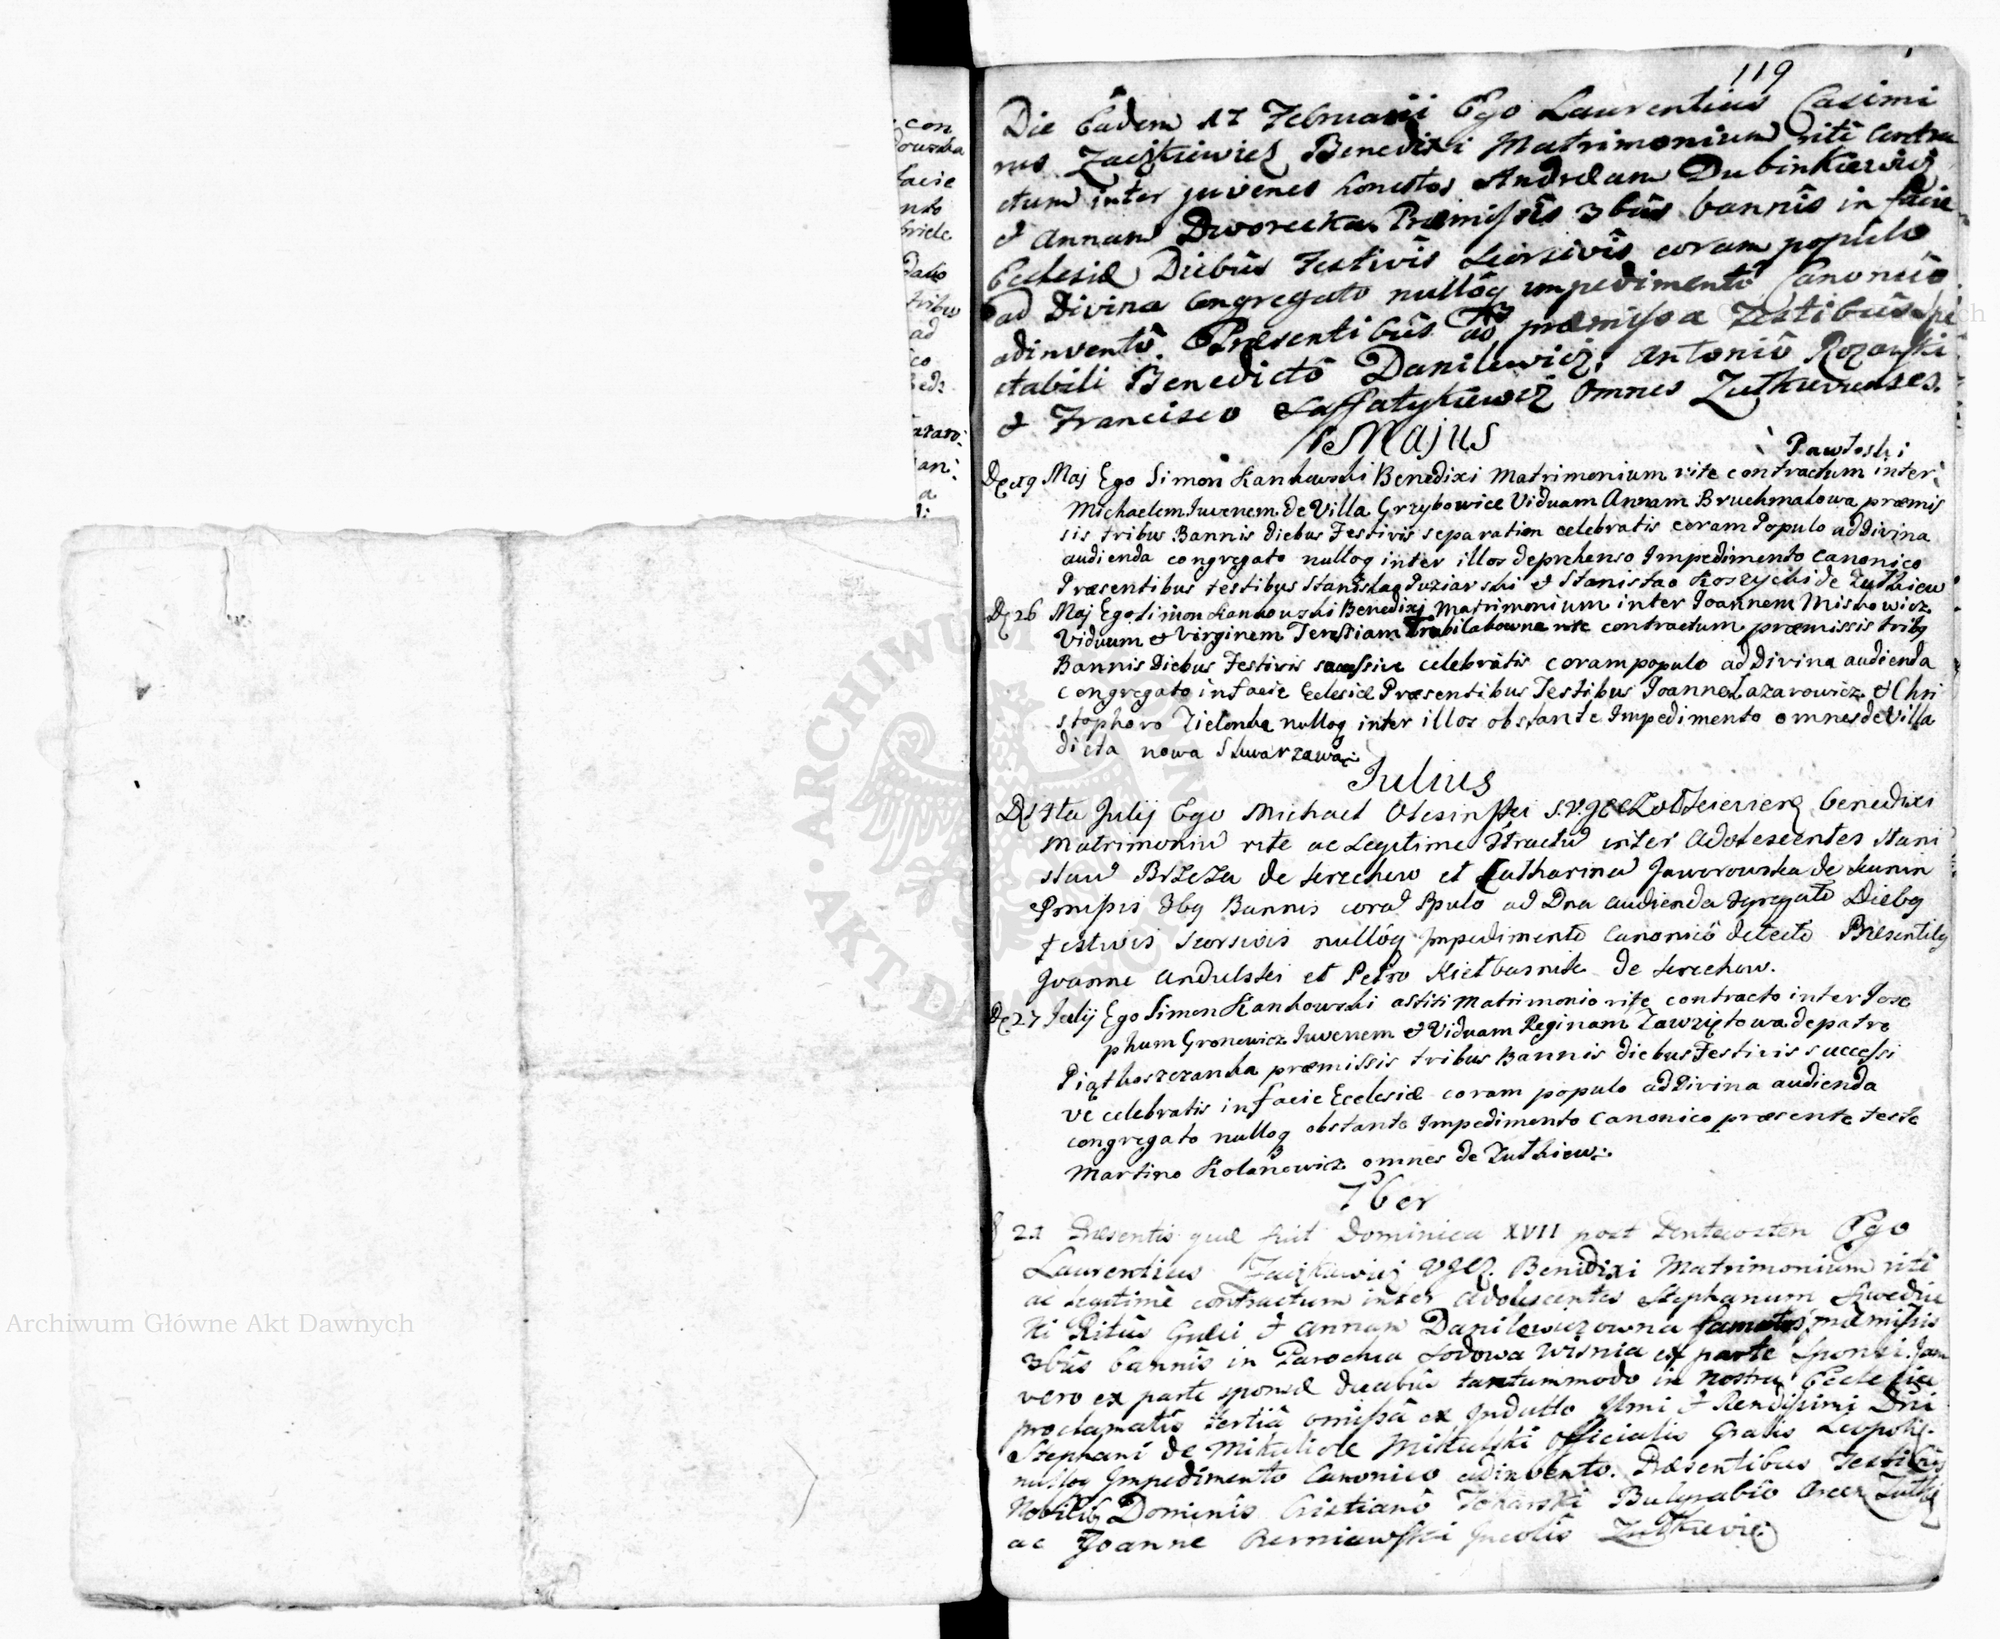 119
Die Eâdem 17 Februarii Ego Laurentius Casimi
rus Zaiżkiewicz Benedixi Matrimonium ritè Contra
ctum inter juvenes honestos Andræam Dubinkiewicz
et Annam Dworecka Præmissis 3bûs bannîs in facie
Ecclesiæ Diebûs Festivîs Seorsivîs coram populo
ad Divina Congregato nullôq impedimentô Canonicô
adinventô. Præsentibûs ad præmissa Testibûs Spe
ctabili Benedictô Danilewicz, Antoniô Rozowski
et Francisco Saffatykiewicz Omnes Zulkievienses.
Majus
Pawłoski
De 19 Maj Ego Simon Kankowski Benedixi Matrimonium rite contractum inter
Michaelem Iuvenem de Villa Grzybowice Viduam Annam Bruchmalowa præmis
sis tribus Bannis diebus Festivis separatim celebratis coram Populo ad Divina
audienda congregato nulloq inter illos deprehenso Impedimento Canonico
Præsentibus testibus Stanislao Puziarski et Stanislao Koszycki de Zułkiew
De 26 Maj Ego Simon Kankowski Benedixi Matrimonium inter Joannem Miskowicz
Viduum et Virginem Teressiam Trabilakowna rite contractum præmissis tribq
Bannis Diebus Festivis successive celebratis coram populo ad Divina audienda
congregato in facie Eclesiæ Præsentibus Testibus Joanne Lazarowicz et Chri
stophoro Zielonka nulloq inter illos obstante Impedimento omnes de Villa
dicta nowa Skwarzawa
Julius
De 14ta Julij Ego Michael Olesinski benedixi
Matrimoniu rite ac Legitime inter Adolescentes Stani
slau Brzeza de Serechow et Catharina Jaworowska de
Præmissis 3bq Bannis cora Ppulo ad Dna audienda gregato Diebq
festivis Seorsivis nullóq Impedimento Canonicô detecto Præsentibq
Joanne Andulski et Petro Kiełbasnik de Serechow.
De 27 Julij Ego Simon Kankowski astiti Matrimonio rite contracto inter Jose
phum Gronowicz Iuvenem et Viduam Reginam Zawziętowa de patre
Piątkoszczanka præmissis tribus Bannis diebus Festivis successi
ve celebratis in facie Ecclesiæ coram populo ad Divina audienda
congregato nulloq obstante Impedimento Canonico præsente teste
Martino Kolanowicz omnes de Zułkiew
7ber
21 Præsentis quæ fuit Dominica XVII post Pentecosten Ego
Laurentius Zaiżkiewicz Benedixi Matrimonium ritè
ac Legitimè contractum inter Adolescentes Stephanum
Ritûs Græci et Annam Danilewiczowna præmissis
3bûs bannîs in Parochia Sodowa Wisnia ex parte Sponsi
vero ex parte sponsæ duabûs tantummodo in nostra Ecclesia
proclamatîs tertiâ omissâ ex Indulto Illmi et Rendissimi Dni
Stephani de Mikulicze Mikulski Officialis Gralis Leopol.
nulloq Impedimento Canonico adinvento. Præsentibus Testibûs
Nobilibq Dominîs Cristianô Tokarski Burgrabiô Arcen Zulki
ac Joanne Berniawski Incolîs Zulkievie
Archiwum Główne Akt Dawnych